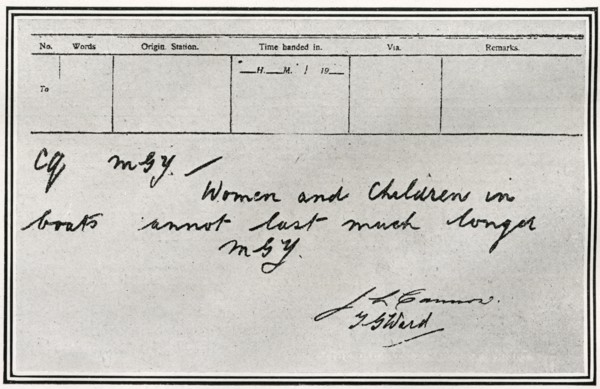 No. Words Origin. Station. Time handed in. Via. Remarks.
H. M. / 19
To
CQ MGY. —
Women and Children in
boats annot last much longer
MGY.
T G Ward